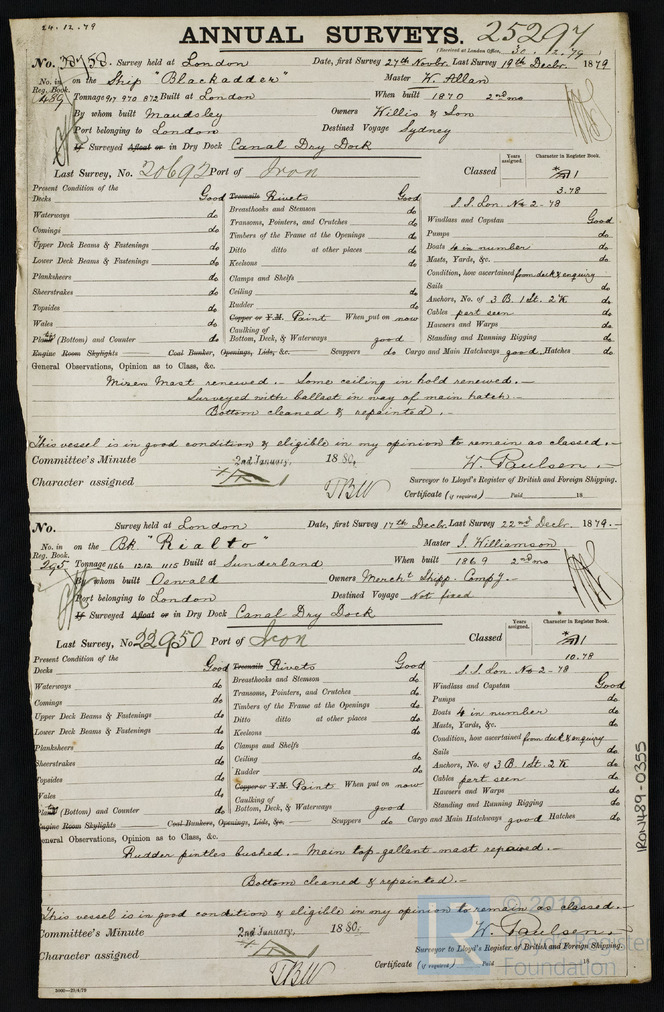 24.12.79
ANNUAL SURVEYS. 25297
(Received at London Office, 30.12.79)
No. Survey held at London Date, first Survey 27th Novbr. Last Survey 19th Decbr. 1879
No. in Reg. Book. on the Ship "Blackadder" Master W. Allan
489 Tonnage 917 970 872 Built at London When built 1870 2nd mo
By whom built Maudsley Owners Willis & Son
Port belonging to London Destined Voyage Sydney
If Surveyed Afloat or in Dry Dock Canal Dry Dock
Last Survey, No. 20692 Port of Iron Classed
Years assigned. Character in Register Book.
1
3.78
S.S. Lon. No 2-78
Present Condition of the
Decks Good
Waterways do
Comings do
Upper Deck Beams & Fastenings do
Lower Deck Beams & Fastenings do
Planksheers do
Sheerstrakes do
Topsides do
Wales do
Plank (Bottom) and Counter do
Treenails Rivets Good
Breasthooks and Stemson do
Transoms, Pointers, and Crutches do
Timbers of the Frame at the Openings do
Ditto ditto at other places do
Keelsons do
Clamps and Shelfs
Ceiling do
Rudder do
Copper or Y.M. Paint When put on now
Caulking of
Bottom, Deck, & Waterways good
Windlass and Capstan Good
Pumps do
Boats 4 in number do
Masts, Yards, &c. do
Condition, how ascertained from deck & enquiry
Sails do
Anchors, No. of 3 B. 1 St. 2 K do
Cables part seen do
Hawsers and Warps do
Standing and Running Rigging do
Engine Room Skylights Coal Bunker, Openings, Lids, &c. Scuppers do Cargo and Main Hatchways good Hatches do
General Observations, Opinion as to Class, &c.
Mizen Mast renewed. – Some ceiling in hold renewed. –
Surveyed with ballast in way of main hatch. –
Bottom cleaned & repainted. –
This vessel is in good condition & eligible in my opinion to remain as classed. –
Committee's Minute 2nd January, 1880, W. Paulsen. –
Character assigned TBW Surveyor to Lloyd's Register of British and Foreign Shipping.
Certificate (if required) Paid 18
No. Survey held at London Date, first Survey 17th Decbr Last Survey 22nd Decbr. 1879. –
No. in Reg. Book. on the Bk "Rialto" Master J. Williamson
295 Tonnage 1166 1212 1115 Built at Sunderland When built 1869 2nd mo
By whom built Oswald Owners Mercht. Shipp. Compy. –
Port belonging to London Destined Voyage Not fixed
If Surveyed Afloat or in Dry Dock Canal Dry Dock
Last Survey, No. 22950 Port of Iron Classed
Years assigned. Character in Register Book.
1
10.78
S.S. Lon. No 2-78
Present Condition of the
Decks Good
Waterways do
Comings do
Upper Deck Beams & Fastenings do
Lower Deck Beams & Fastenings do
Planksheers do
Sheerstrakes do
Topsides do
Wales do
Plank (Bottom) and Counter do
Treenails Rivets Good
Breasthooks and Stemson do
Transoms, Pointers, and Crutches do
Timbers of the Frame at the Openings do
Ditto ditto at other places do
Keelsons do
Clamps and Shelfs
Ceiling do
Rudder do
Copper or Y.M. Paint When put on now
Caulking of
Bottom, Deck, & Waterways good
Windlass and Capstan Good
Pumps do
Boats 4 in number do
Masts, Yards, &c. do
Condition, how ascertained from deck & enquiry
Sails do
Anchors, No. of 3 B. 1 St. 2 K do
Cables part seen do
Hawsers and Warps do
Standing and Running Rigging do
Engine Room Skylights Coal Bunkers, Openings, Lids, &c. Scuppers do Cargo and Main Hatchways good Hatches do
General Observations, Opinion as to Class, &c.
Rudder pintles bushed. – Main top-gallant-mast repaired. –
Bottom cleaned & repainted. –
This vessel is in good condition & eligible in my opinion to remain as classed. –
Committee's Minute 2nd January, 1880, W. Paulsen. –
Character assigned TBW Surveyor to Lloyd's Register of British and Foreign Shipping.
Certificate (if required) 18
IRON489-0355
LR
Foundation